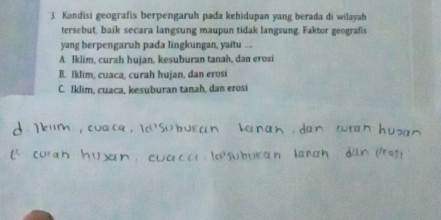 3. Kondisi geografis berpengaruh pada kehidupan yang berada di wilayah
tersebut, baik secara langsung maupun tidak langsung. Faktor geografis
yang berpengaruh pada lingkungan, yaitu ...
A. Iklim, curah hujan, kesuburan tanah, dan erosi
B. Iklim, cuaca, curah hujan, dan erosi
C. Iklim, cuaca, kesuburan tanah, dan erosi
d. Iklim, cuaca, tanah, dan curah hujan
curah hujan, cuaca, tanah dan erosi